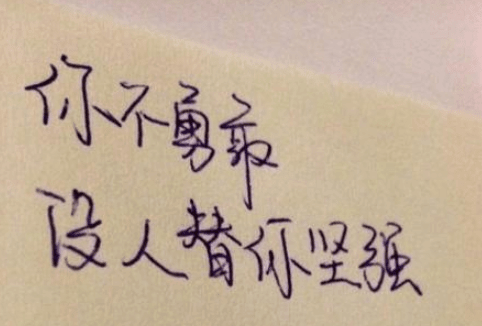 你不勇敢
没人替你坚强